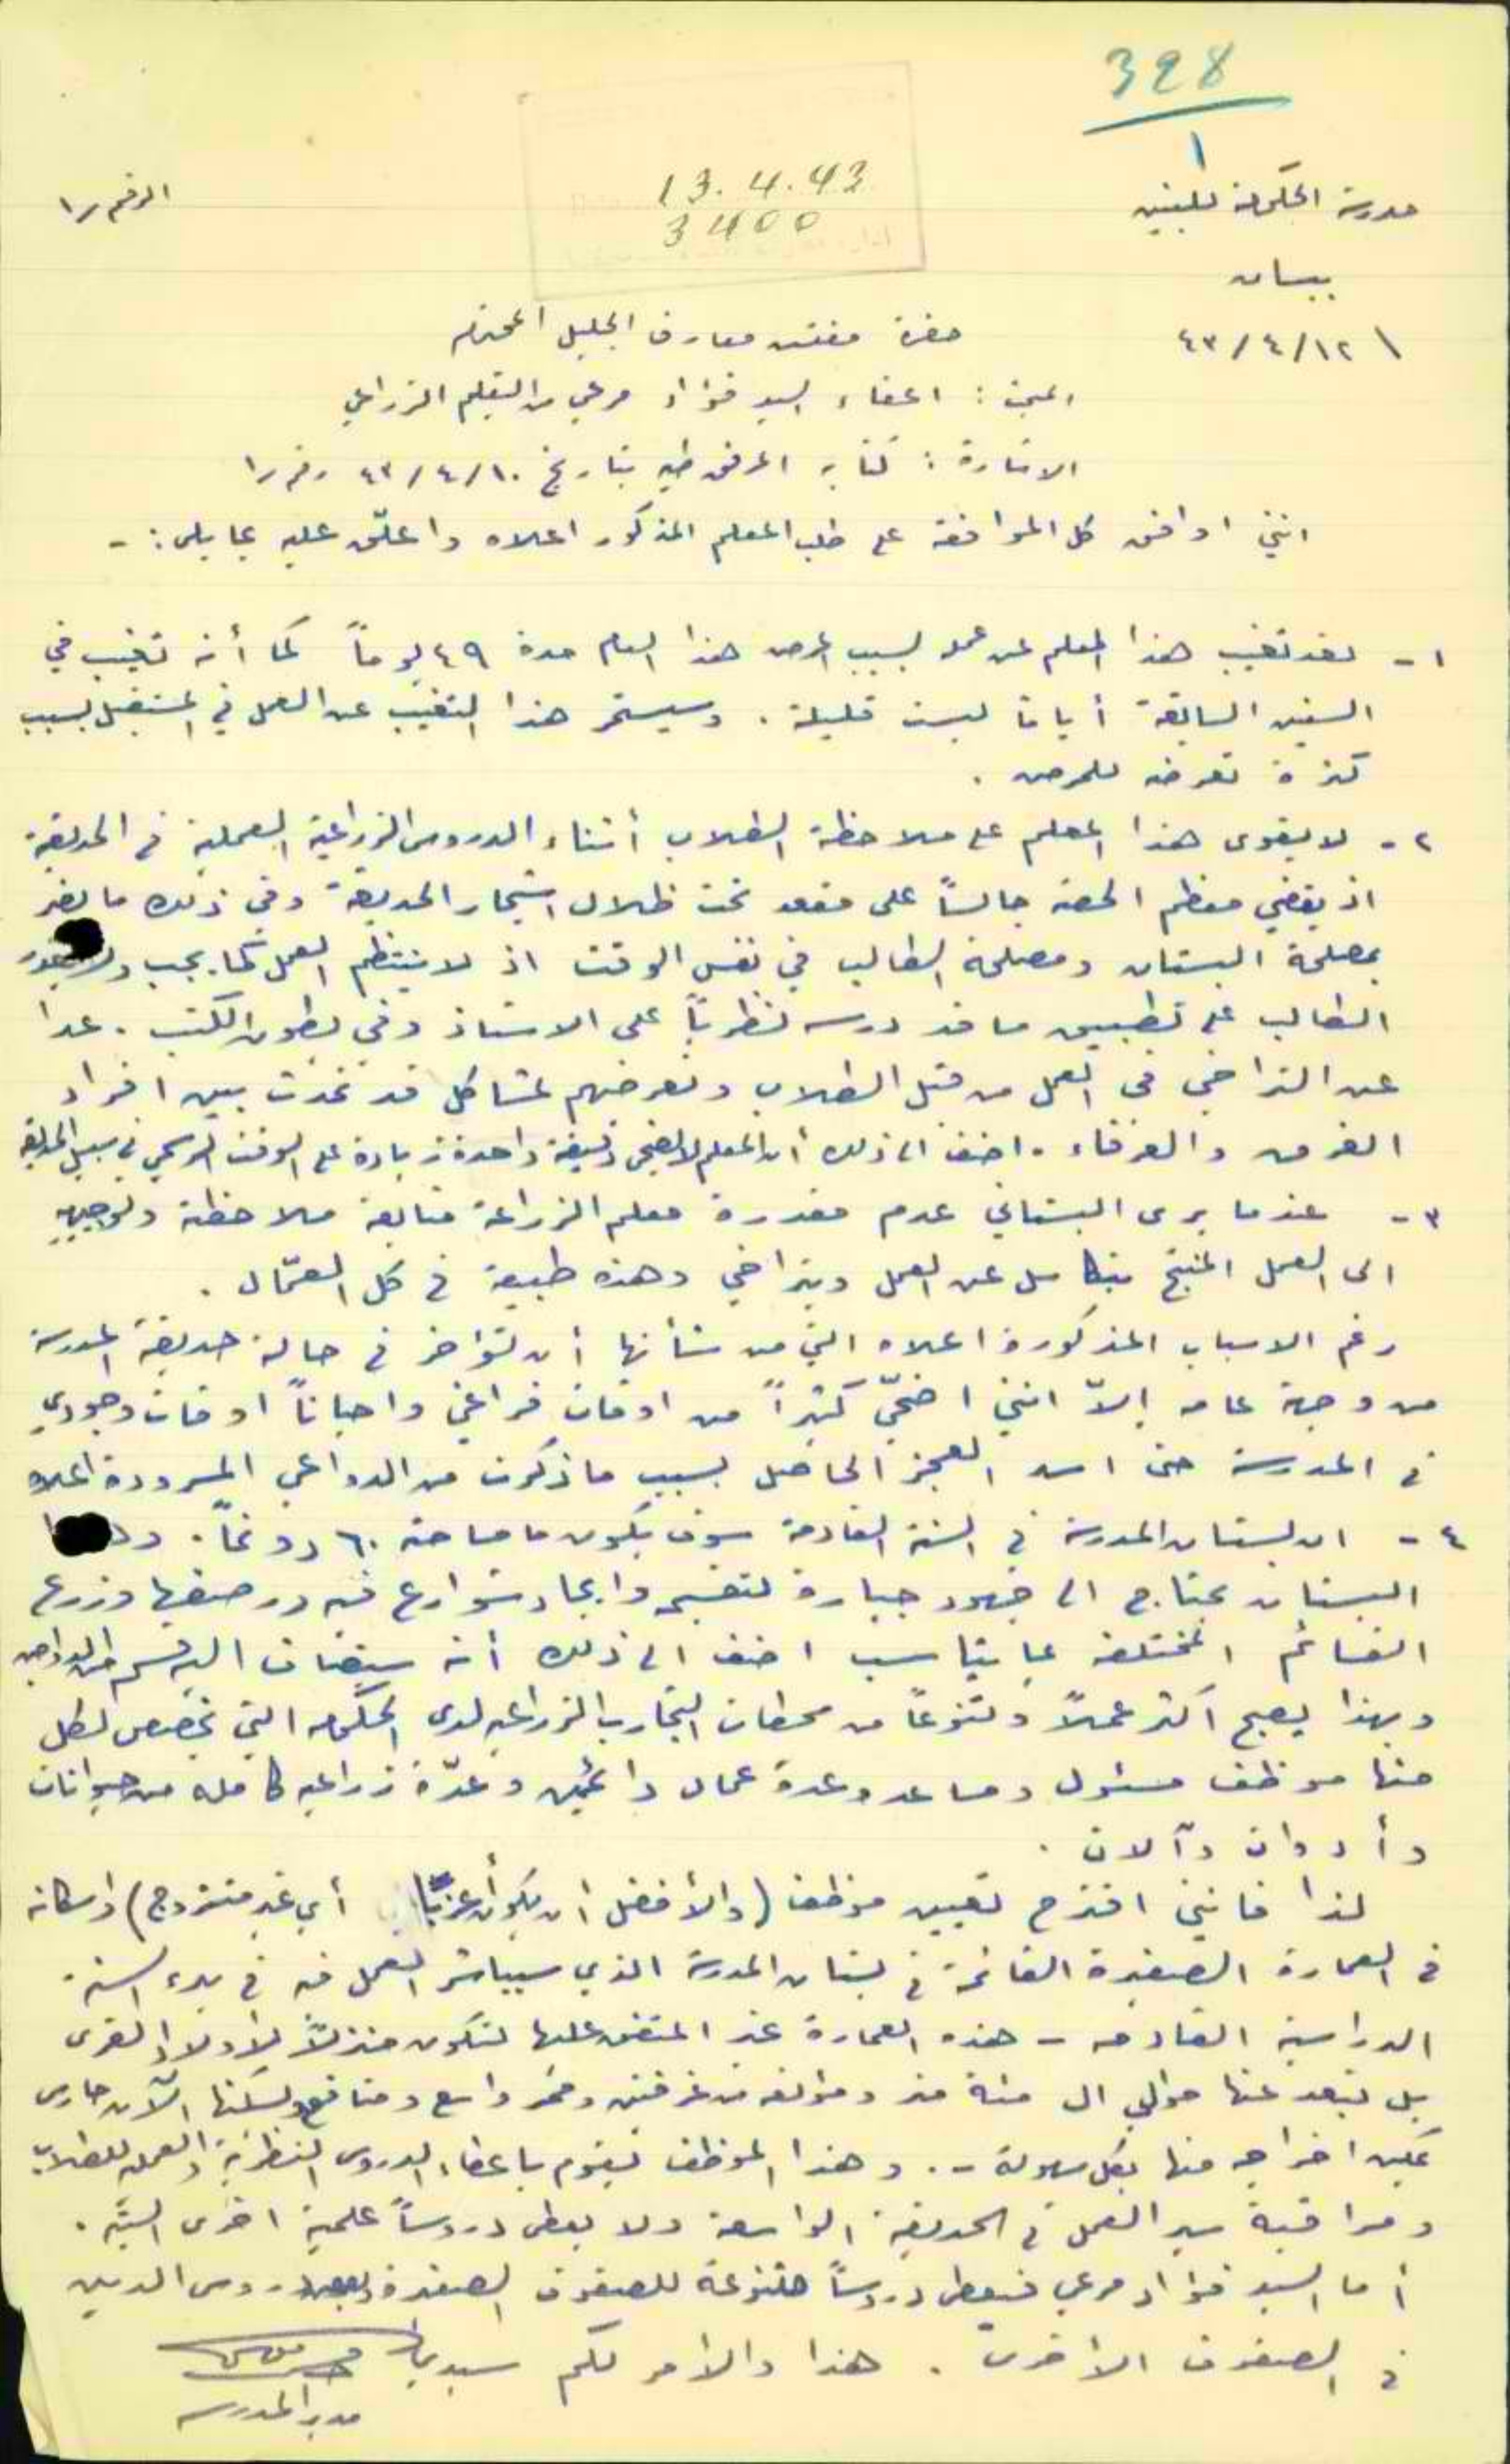 328
١
13.4.43
3400
الرقم ر١
مدرسة الحكومة للبنين
بيسان
١٢/٤/٤٣
حضرة مفتش معارف الجليل المحترم
المبحث : اعفاء السيد فؤاد مرعي من التعليم الزراعي
الاشارة : كتابه المرفق طيه بتاريخ ١٠/٤/٤٣ رقم ر١
انني اوافق كل الموافقة على طلب المعلم المذكور اعلاه واعلّق عليه بما يلي :-
١- لقد تغيب هذا المعلم عن عمله بسبب المرض هذا العام مدة ٤٩ يوماً كما أنه تغيب في
السنين السابقة أياما ليست قليلة . وسيستمر هذا التغيب عن العمل في المستقبل بسبب
كثرة تعرضه للمرض .
٢- لا يقوى هذا المعلم على ملاحظة الطلاب أثناء الدروس الزراعية العملية في الحديقة
اذ يقضي معظم الحصة جالساً على مقعد تحت ظلال اشجار الحديقة وفي ذلك ما يضر
بمصلحة البستان ومصلحة الطالب في نفس الوقت اذ لا ينتظم العمل كما يجب
الطالب على تطبيق ما قد درسه نظرياً على الاستاذ وفي بطون الكتب . عدا
عن التراخي في العمل من قبل الطلاب وتعرضهم لمشاكل قد تحدث بين افراد
الفرق والعرفاء . اضف الى ذلك أن المعلم لا يضحي دقيقة واحدة زيادة على الوقت الرسمي في سبيل الحديقة
٣- عندما يرى البستاني عدم مقدرة معلم الزراعة متابعة ملاحظته وتوجيهه
الى العمل المنتج يتكاسل عن العمل ويتراخى وهذه طبيعة في كل العمّال .
رغم الاسباب المذكورة اعلاه التي من شأنها أن تؤخر في حالة حديقة المدرسة
من وجهة عامه إلاّ انني اضحّي كثيراً من اوقات فراغي واحياناً اوقات وجودي
في المدرسة حتى اسد العجز الحاصل بسبب ما ذكرت من الدواعي المسرودة اعلاه
٤- ان بستان المدرسة في السنة القادمة سوف يكون ما مساحته ٦٠ دونماً .
البستان يحتاج الى جهود جبارة لتقسيمه وايجاد شوارع فيه ورصفها وزرع
القسائم المختلفة بما يتناسب اضف الى ذلك أنه سيضاف اليه قسم الدواجن
وبهذا يصبح أكثر عملاً وتنوعاً من محطات التجارب الزراعيه لدى الحكومه التي تخصص لكل
منها موظف مسئول ومساعد وعدة عمال دائمين وعدّة زراعيه كامله من حيوانات
وأدوات وآلات .
لذا فانني اقترح تعيين موظف (والأفضل أن يكون أعزباً أي غير متزوج) واسكانه
في العمارة الصغيرة القائمة في بستان المدرسة الذي سيباشر العمل فيه في بدء السنة
الدراسية القادمه - هذه العمارة غير المتفق عليها لتكون منزلاً لأولاد القرى
بل تبعد عنها حوالي ال مئة متر ومؤلفه من غرفتين وممر واسع ومنافع ويسكنها الآن حارس
يمكن اخراجه منها بكل سهولة - . وهذا الموظف يقوم باعطاء الدروس النظرية والعمليه للطلاب
ومراقبة سير العمل في الحديقة الواسعة ولا يعطي دروساً علمية اخرى البتّة .
أما السيد فؤاد مرعي فيعطي دروساً متنوعة للصفوف الصغيرة وبعض دروس الدين
في الصفوف الاخرى . هذا والامر لكم سيدي
مدير المدرسه